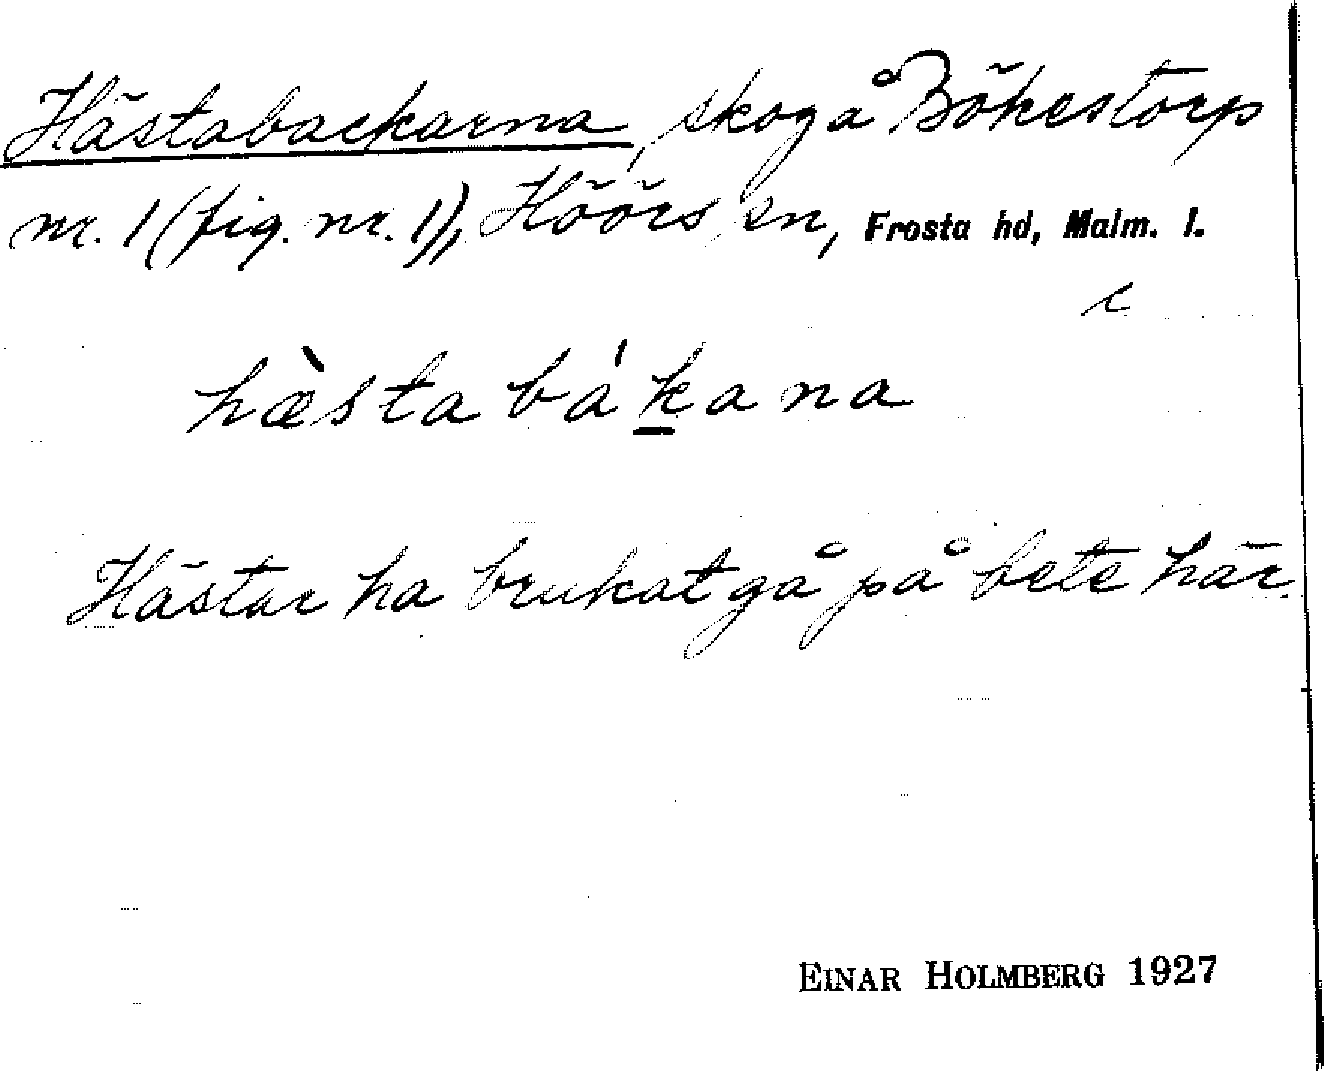 Hästabackarna, skog å Bökestorp
nr. 1 (fig. nr. 1), Höörs sn, Frosta hd, Malm. l.
c
hæ̀sta bákana
Hästar ha brukat gå på bete här.
EINAR HOLMBERG 1927